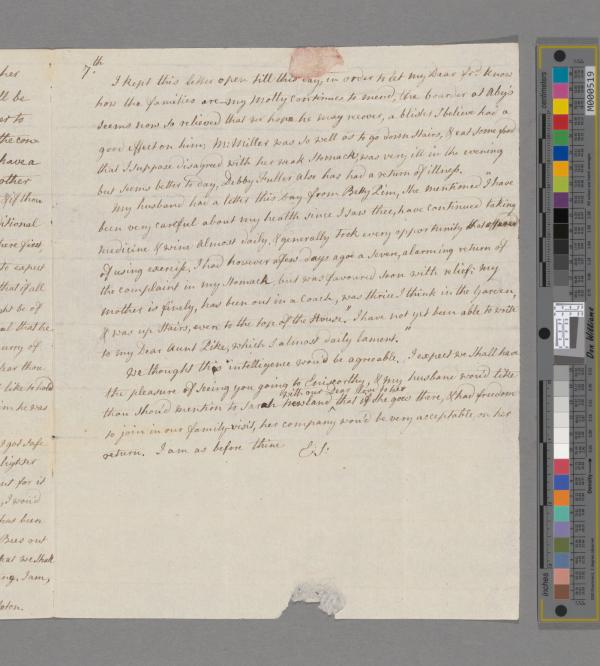 her
ll be
er to
the con-
have a
other
& if thou
ditional
here first
to expect
that if all
ght be of
al that he
urry of
hear thou
I like to hold
im he was
I got safe
lighter
ut for it
, I won'd
has been
Bees out
that we shall
ing, I am,
7.th
I kept this letter open till this day, in order to let my Dear frd. know
how the families are— my Molly continues to mend, the boarder at Abey's
seems now so relieved that we hope he may recover, a blister I believe had a
good effect on him; M. Miller was so well as to go down Stairs, & eat some food
that I suppose disagreed with her weak Stomack, was very ill in the evening
but seems better to day, Debby Fuller also has had a return of illness.
My husband had a letter this day from Betty Pim, she mentioned "I have
been very careful about my health since I saw thee, have continued taking
medicine & wine almost daily, & generally took every opportunity that offered
of using exercise, I had however a few days ago a severe, alarming return of
the complaint in my Stomack, but was favoured soon with relief; my
mother is finely, has been out in a Coach, was thrice I think in the Garden,
& was up Stairs, even to the top of the House." I have not yet been able to write
to my Dear Aunt Pike, which I almost daily lament."
We thought this intelligence would be agreeable. I expect we shall have
the pleasure of seeing you going to Eniscorthy, & my husband would like
with our Dear
thou should mention to Sarah Newland that if she goes there, & had freedom
to join in our family-visit, her company wou'd be very acceptable on her
return. I am as before thine
centimeters
inches
M000519
Don Williams
Density